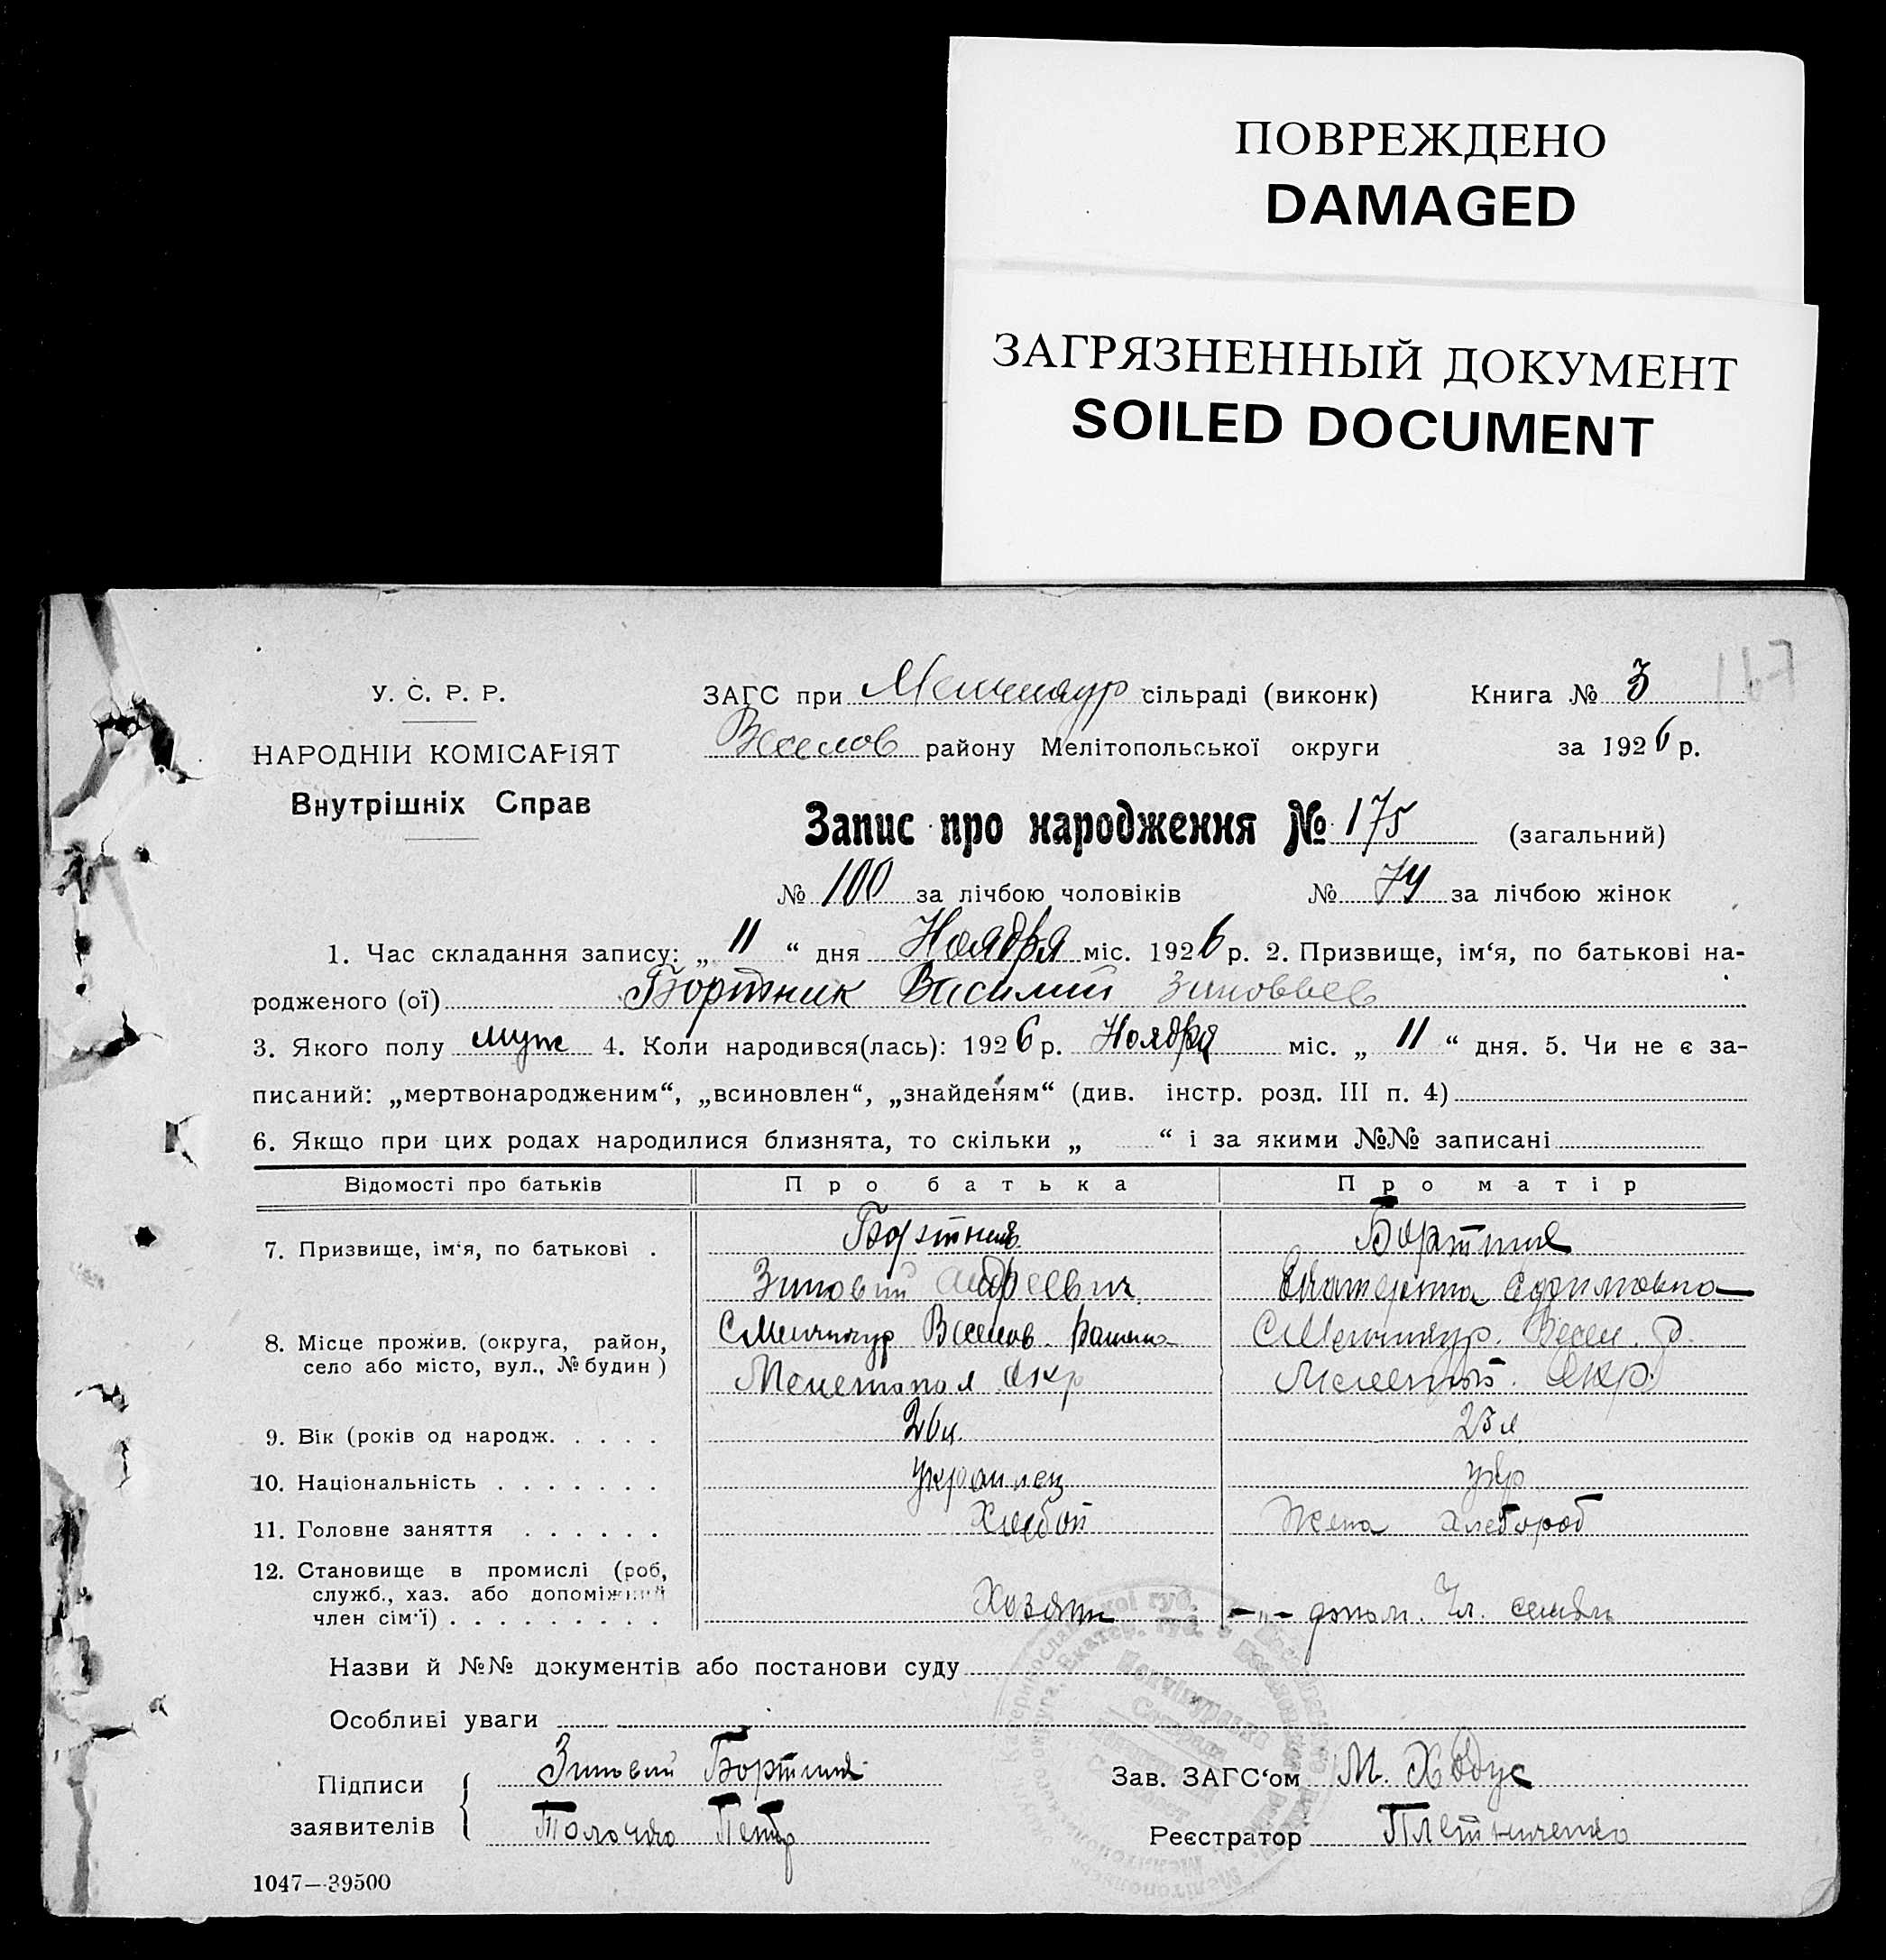 ПОВРЕЖДЕНО
DAMAGED
ЗАГРЯЗНЕННЫЙ ДОКУМЕНТ
SOILED DOCUMENT
У. С. Р. Р.
НАРОДНІЙ КОМІСАРІЯТ
Внутрішніх Справ
ЗАГС при Менчикур сільраді (виконк) Книга № 3
Веселов району Мелітопольської округи за 1926 р.
Запис про народження № 175 (загальний)
№ 100 за лічбою чоловіків № 74 за лічбою жінок
1. Час складання запису: „ 11 “ дня Ноября міс. 1926 р. 2. Призвище, ім‘я, по батькові на-
родженого (ої) Бортник Василий Зиновьев
3. Якого полу муж 4. Коли народився(лась): 1926 р. Ноября міс. „ 11 “ дня. 5. Чи не є за-
писаний: „мертвонародженим“, „всиновлен“, „знайденям“ (див. інстр. розд. III п. 4)
6. Якщо при цих родах народилися близнята, то скільки „ “ і за якими №№ записані
Відомості про батьків Про батька Про матір
7. Призвище, ім‘я, по батькові . Бортник Бортник
Зиновий Андреевич Екатерина Ефимовна
8. Місце прожив. (округа, район, село або місто, вул., № будин) С Менчикур Веселов. С Менчикур. Весел. р.
Мелетопол окр Мелетоп. Окр.
9. Вік (років од народж. . . . . 26 л. 23 л
10. Національність . . . . . . . Украинец укр
11. Головне заняття . . . . . . Хлебоп Жена хлебороб
12. Становище в промислі (роб, служб., хаз. або допоміжний член сім‘ї) . . . . . . . . . Хозяин -„- Чл. семьи
Назви й №№ документів або постанови суду
Особливі уваги
Підписи заявителів { Зиновий Бортник Зав. ЗАГС‘ом М. Ходус
Толочко Петр Реєстратор Плетниченко
1047—39500